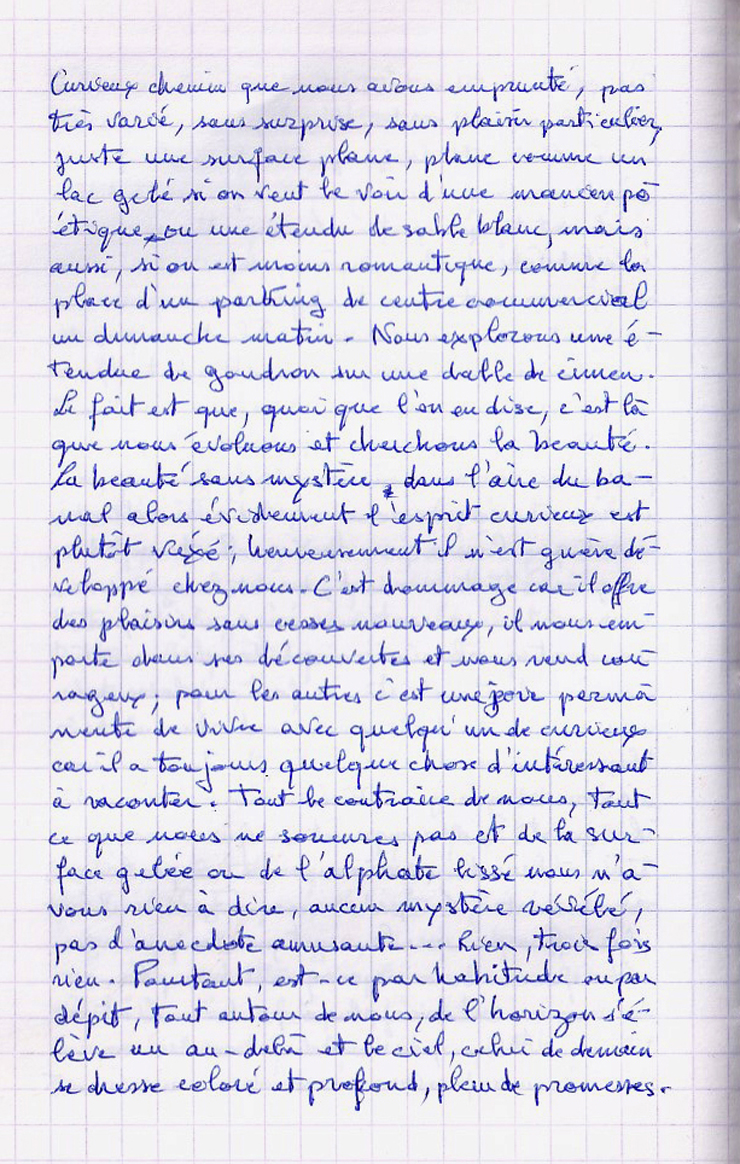 Curieux chemin que nous avons emprunté, pas
très varié, sans surprise, sans plaisir particulier,
juste une surface plane, plane comme un
lac gelé si on veut le voir d'une manière po
étique, ou une étendu de sable blanc, mais
aussi, si on est moins romantique, comme la
place d'un parking de centre commercial
un dimanche matin. Nous explorons une é-
tendue de goudron sur une dalle de cimen.
Le fait est que, quoi que l'on en dise, c'est là
que nous évoluons et cherchons la beauté.
La beauté sans mystère, dans l'aire du ba-
nal alors évidement l'esprit curieux est
plutôt vexé; heureusement il n'est guère dé-
veloppé chez nous. C'est dommage car il offre
des plaisirs sans cesses nouveaux, il nous em
porte dans ses découvertes et nous rend cou
rageux; pour les autres c'est une joie perma
nente de vivre avec quelqu'un de curieux
car il a toujours quelque chose d'intéressant
à raconter. Tout le contraire de nous, tout
ce que nous ne sommes pas et de la sur-
face gelée ou de l'alphate lissé nous n'a-
vons rien à dire, aucun mystère révélé,
pas d'anecdote amusante... Rien, trois fois
rien. Pourtant, est-ce par habitude ou par
dépit, tout autour de nous, de l'horizon s'é-
lève un au-delà et le ciel, celui de demain
se dresse coloré et profond, plein de promesses.